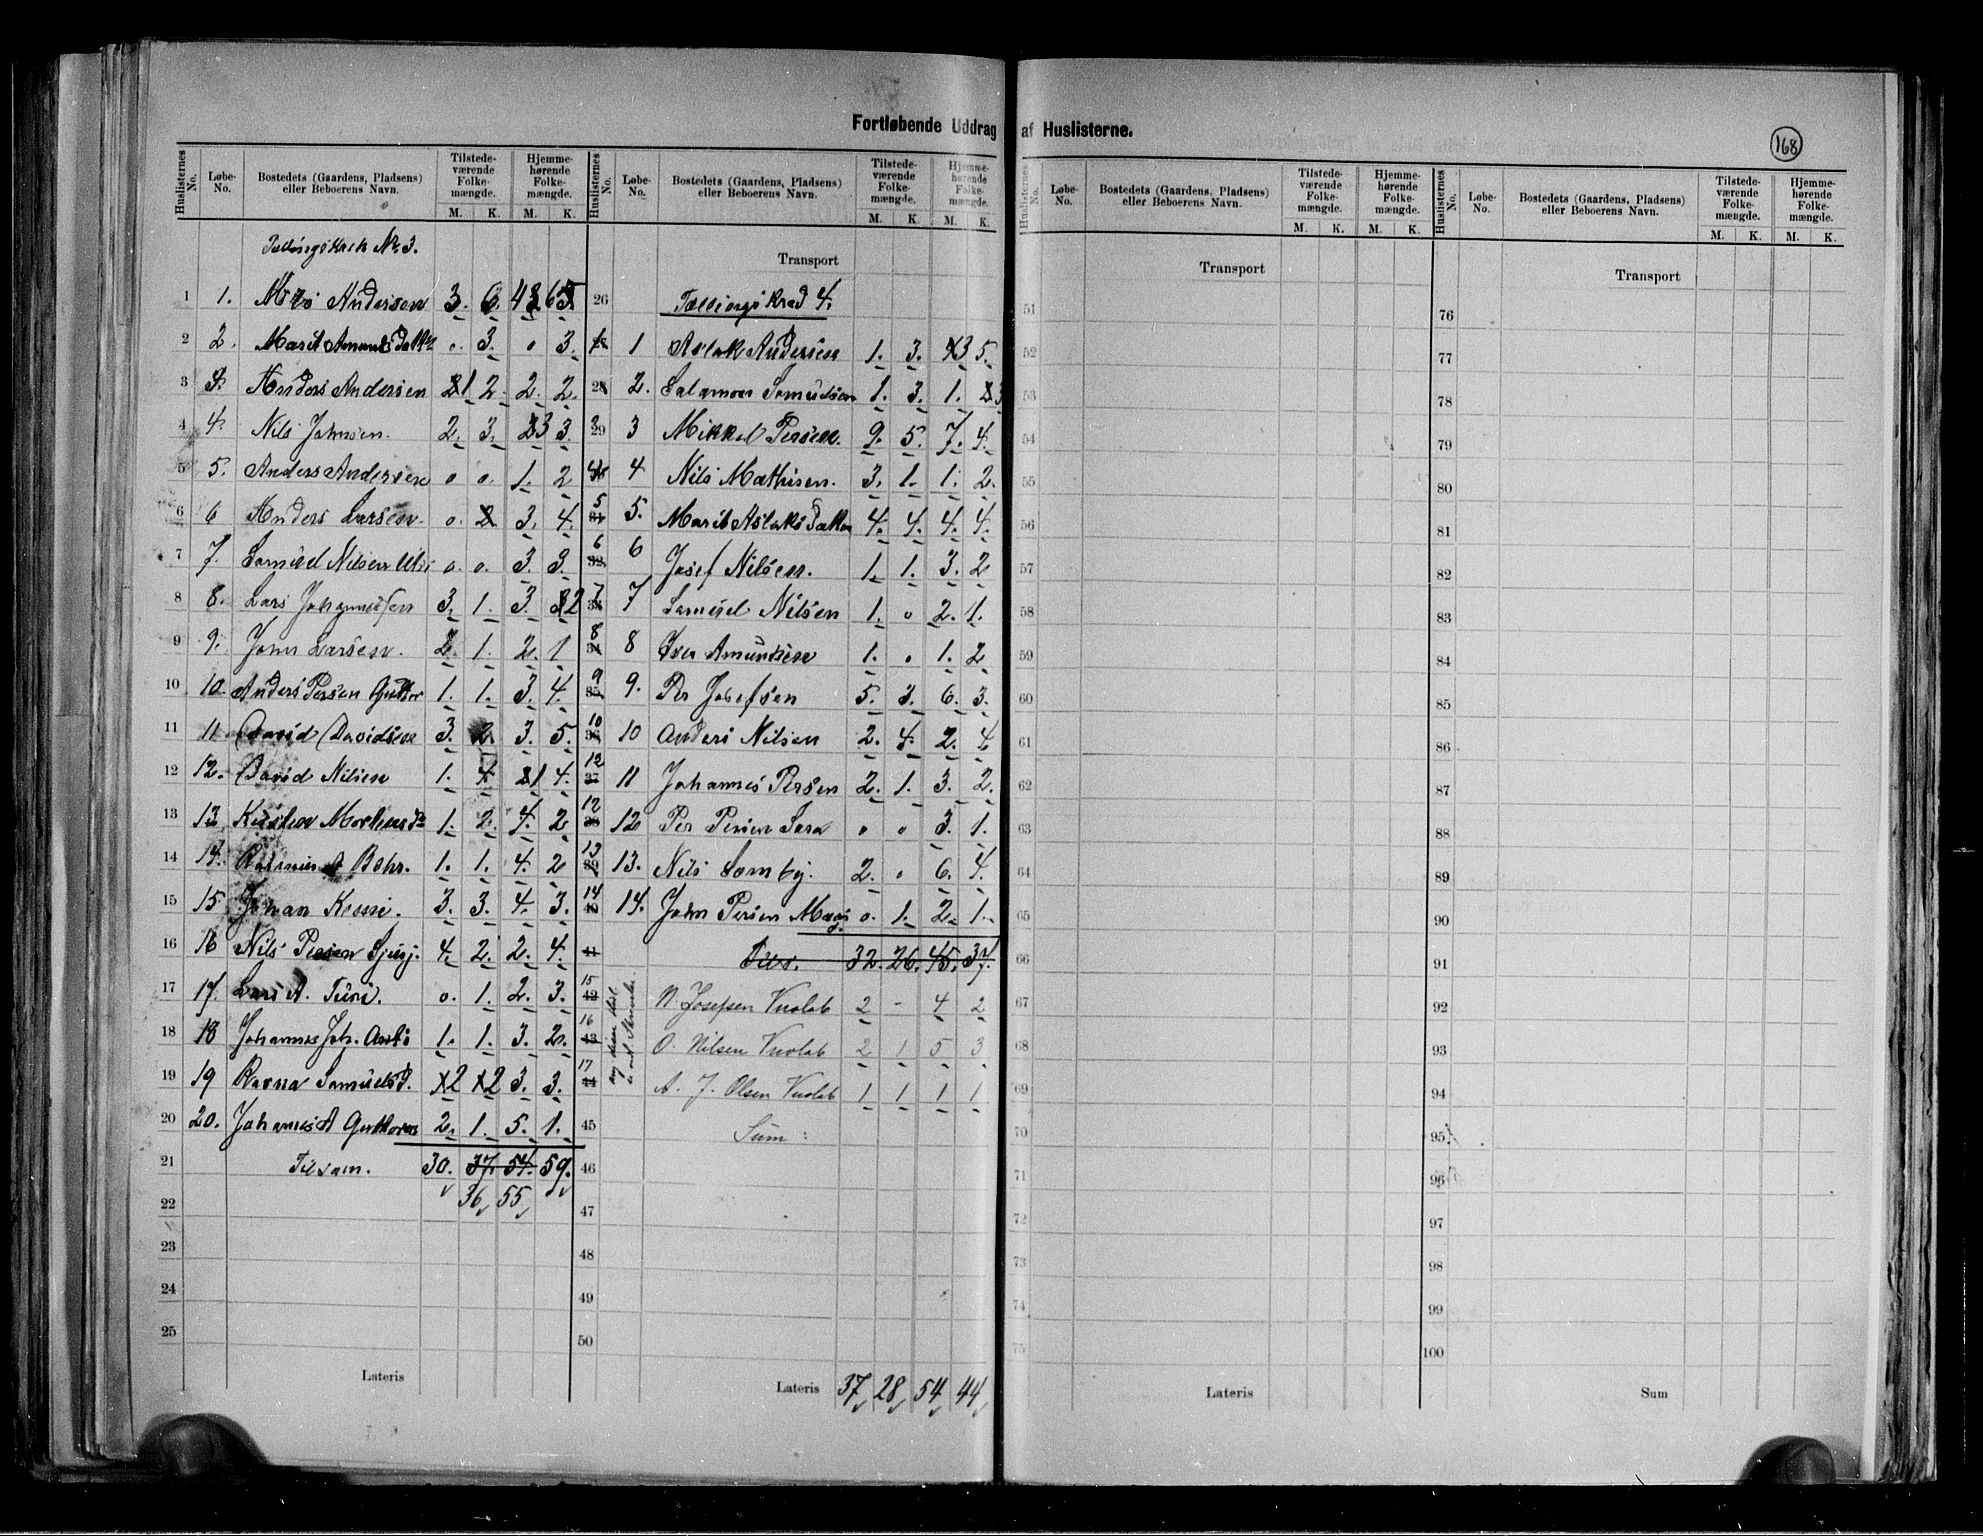 Fortløbende Uddrag af Huslisterne.
168
Huslisternes No. Løbe-No. Bostedets (Gaardens, Pladsens) eller Beboerens Navn. Tilstedeværende Folkemængde. M. K. Hjemmehørende Folkemængde. M. K.
Tællingskreds No. 3.
1 1. Nils Andersen 3. 6. 4 6
2 2. Marit Amundsdatter o. 3. o 3.
3 3. Anders Andersen 1 2. 2. 2.
4 4. Nils Johnsen. 2. 3. 3 3.
5 5. Anders Andersen o o. 1. 2
6 6 Anders Larsen. o. 2 3. 4.
7 7. Samuel Nilsen Utsi o. o. 3. 3.
8 8. Lars Johannessen 3. 1. 3. 2
9 9. John Larsen. 2. 1. 2. 1
10 10. Anders Persen Guttor 1. 1. 3. 4.
11 11 David Davidsen 3. 2. 3. 5.
12 12. David Nilsen 1. 4. 1 4.
13 13 Kirsten Mortensd. 1. 2. 4. 2
14 14. Rasmus A Behr. 1. 1. 4. 2
15 15 Johan Kemi. 3. 3. 4. 3.
16 16 Nils Persen 4. 2. 2. 4.
17 17. Lars A. Turi. o. 1. 2. 3.
18 18 Johannes Joh. Anti 1. 1. 3. 2.
19 19 Ravna Samuelsd. 2 2 3. 3.
20 20. Johannes A Guttorm 2. 1. 5. 1.
21 Tilsam. 30. 37. 54. 59.
36 55
22
23
24
25
Lateris
Huslisternes No. Løbe-No. Bostedets (Gaardens, Pladsens) eller Beboerens Navn. Tilstedeværende Folkemængde. M. K. Hjemmehørende Folkemængde. M. K.
Transport
26 Tællingskreds 4.
1 Aslak Andersen 1. 3. 3 5.
28 2. Salamon Samuelsen 1. 3. 1. 3
29 3 Mikkel Persen. 9. 5. 7. 4.
4 Nils Mathisen. 3. 1. 1. 2.
5 31 5. Marit Aslaksdatter 4. 4. 4. 4.
6 32 6 Josef Nilsen. 1. 1. 3. 2
7 33 7 Samuel Nilsen 1. o 2. 1.
8 34 8 Iver Amundsen 1. o 1. 2
9 35 9. Per Josefsen 5. 3. 6. 3.
10 36 10 Anders Nilsen 2. 4. 2. 4
12 37 11 Johannes Persen 2. 1. 3. 2.
12 38 12 Per Persen Sara o o 3. 1.
13 39 13. Nils Somby. 2. o 6. 4.
14 40 14. John Persen o. 1. 2. 1.
41 Tils. 32. 26. 45. 37.
15 42 N. Josefsen Vuolab 2 - 4 2
16 43 O. Nilsen Vuolab 2 1 5 3
17 44 A. J. Olsen Vuolab 1 1 1 1
45 Sum:
46
47
48
49
50
Lateris 37 28 54 44
Huslisternes No. Løbe-No. Bostedets (Gaardens, Pladsens) eller Beboerens Navn. Tilstedeværende Folkemængde. M. K. Hjemmehørende Folkemængde. M. K.
Transport
51
52
53
54
55
56
57
58
59
60
61
62
63
64
65
66
67
68
69
70
71
72
73
74
75
Lateris
Huslisternes No. Løbe-No. Bostedets (Gaardens, Pladsens) eller Beboerens Navn. Tilstedeværende Folkemængde. M. K. Hjemmehørende Folkemængde. M. K.
Transport
76
77
78
79
80
81
82
83
84
85
86
87
88
89
90
91
92
93
94
95
96
97
98
99
100
Sum